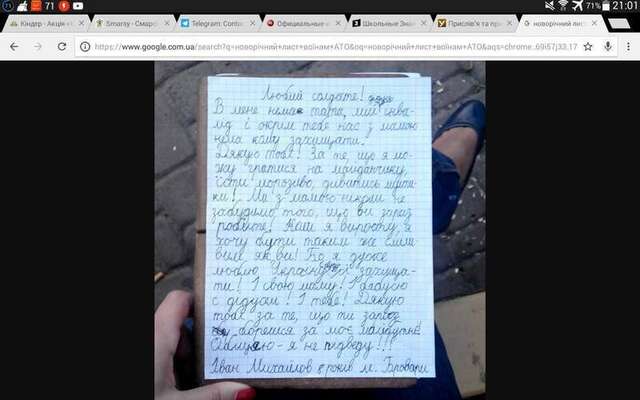 71 71 71% 21:01
Кіндер - Акція Smarsy - Смарс Telegram: Contac Официальные Школьные Зна Прислів'я та пр новорічний лист
https://www.google.com.ua/search?q=новорічний+лист+воїнам+АТО&oq=новорічний+лист+воїнам+АТО&aqs=chrome..69i57j33.17
Любий солдате!
В мене немає тата, мій інва-
лід і окрім тебе нас з мамою
нема кому захищати.
Дякую тобі! За те, що я мо-
жу гратися на майданчику,
їсти морозиво, дивитись мульти-
ки! Ми з мамою ніколи не
забудимо того, що ви зараз
робите! Коли я виросту, я
хочу бути таким же сміли
вим як ви! Бо я дуже
люблю Україну захища-
ти! І свою маму! І бабусю
с дідусем! І тебе! Дякую
тобі за те, що ти зараз
борешся за моє майбутнє!
Обіцяю - я не підведу!!!
Іван Михайлов 8 років м. Бровари